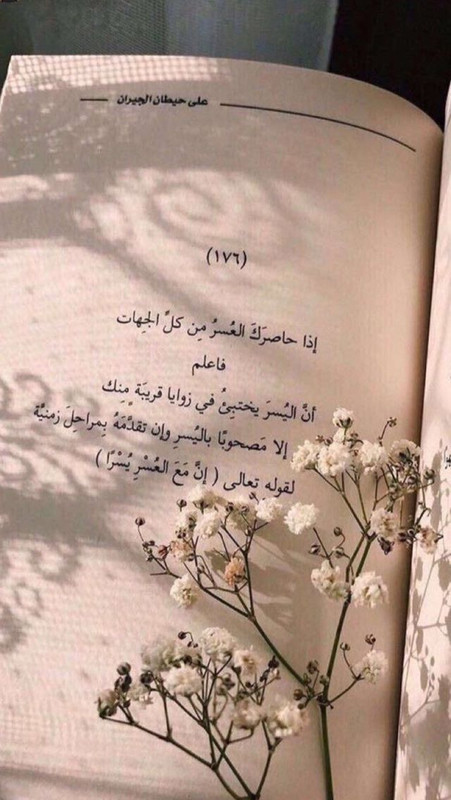 على حيطان الجيران
(١٧٦)
إذا حاصرَكَ العُسرُ مِن كلِّ الجِهات
فاعلم
أنَّ اليُسرَ يختبِئُ في زوايا قريبَة مِنك
إلا مَصحوبًا باليُسرِ وإن تقدَّمَهُ بِمراحِلَ زمنيَّة
لقوله تعالى ( إنَّ مَعَ العُسْرِ يُسْرًا )